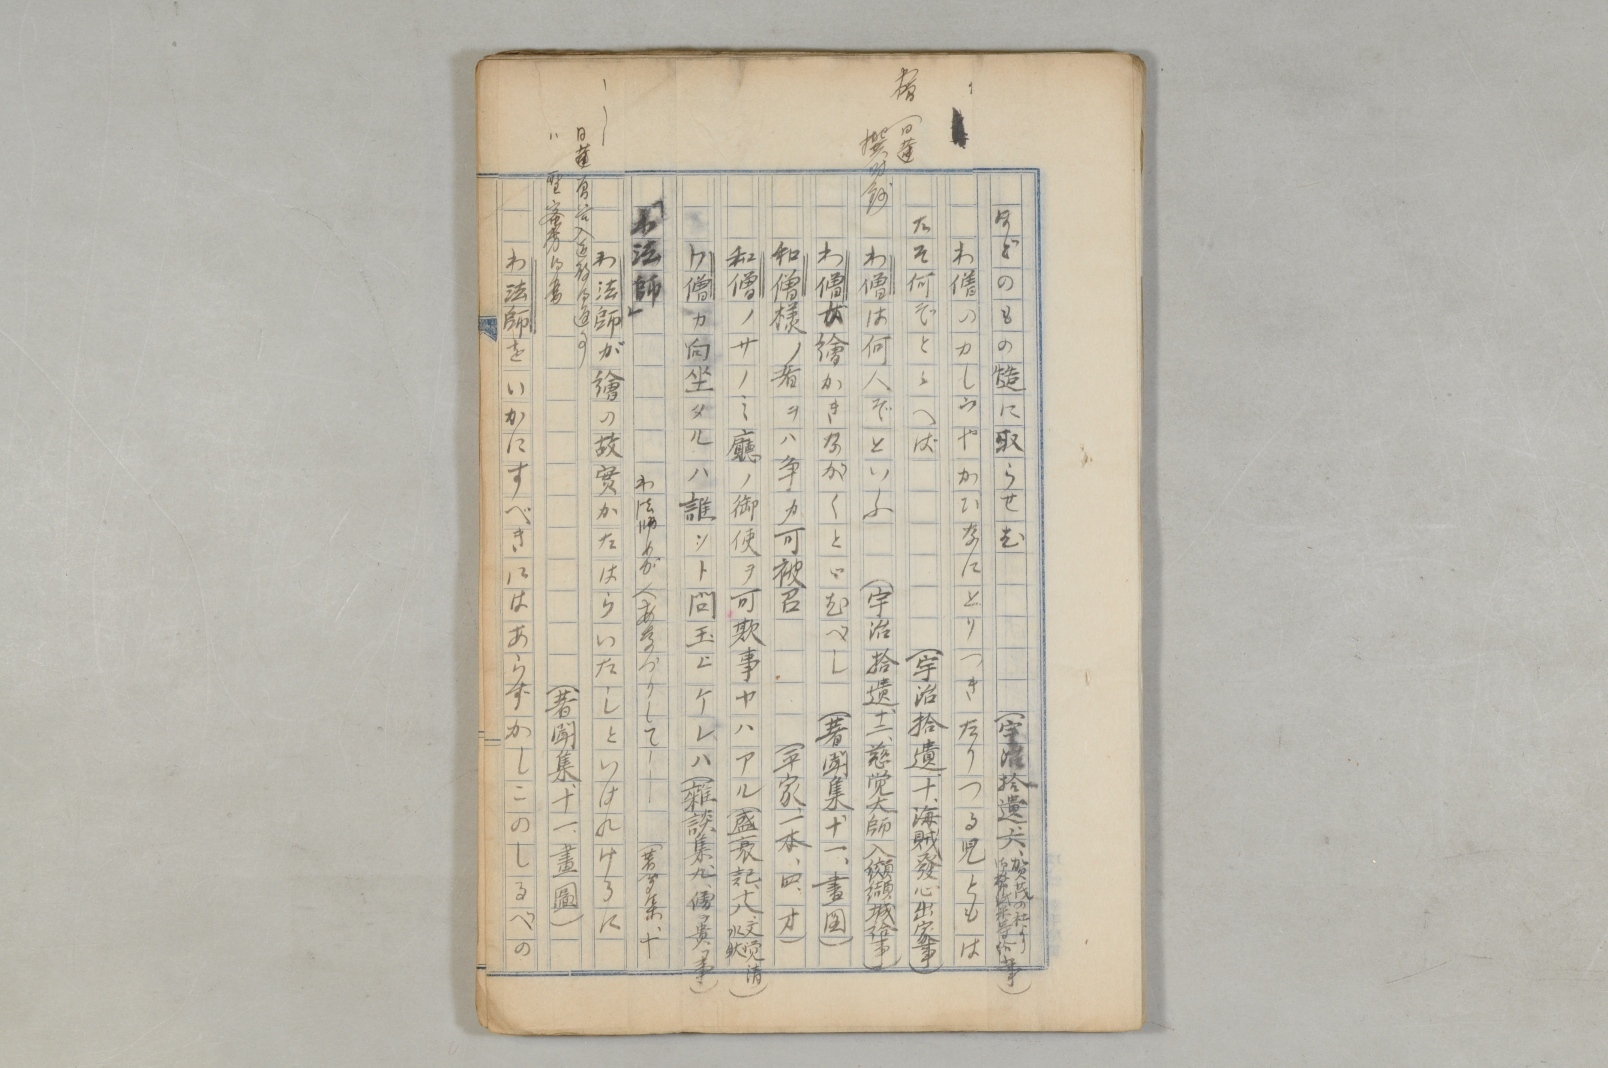 僧
(日蓮
撰時鈔
ほどのもの慥に取らせむ
(宇治拾遺、六、賀茂の社より御幣紙等給事)
わ僧のかしらやかひなにとりつきたりつる児ともは
たそ何ぞとゝへば
(宇治拾遺、十、海賊發心出家事)
わ僧は何人ぞといふ
(宇治拾遺、十三、慈覚大師入纐纈城給事)
わ僧が繪かきながくとゝむべし
(著聞集、十一、畫図)
和僧様ノ者ヲハ争カ可被召
(平家、一本、四、オ)
和僧ノサノミ廳ノ御使ヲ可欺事ヤハアル
(盛衰記、十八、文覚清水状)
ワ僧カ向坐タルハ誰シト問玉ヒケレハ
(雑談集、九、事)
「わ法師」
わ法師めが人あなづりして
(著聞集、十
わ法師が繪の故實かたはらいたしといはれけるに
(著聞集、十一、畫圖)
わ法師をいかにすべきにはあらずかしこのしるべの
日蓮
〃